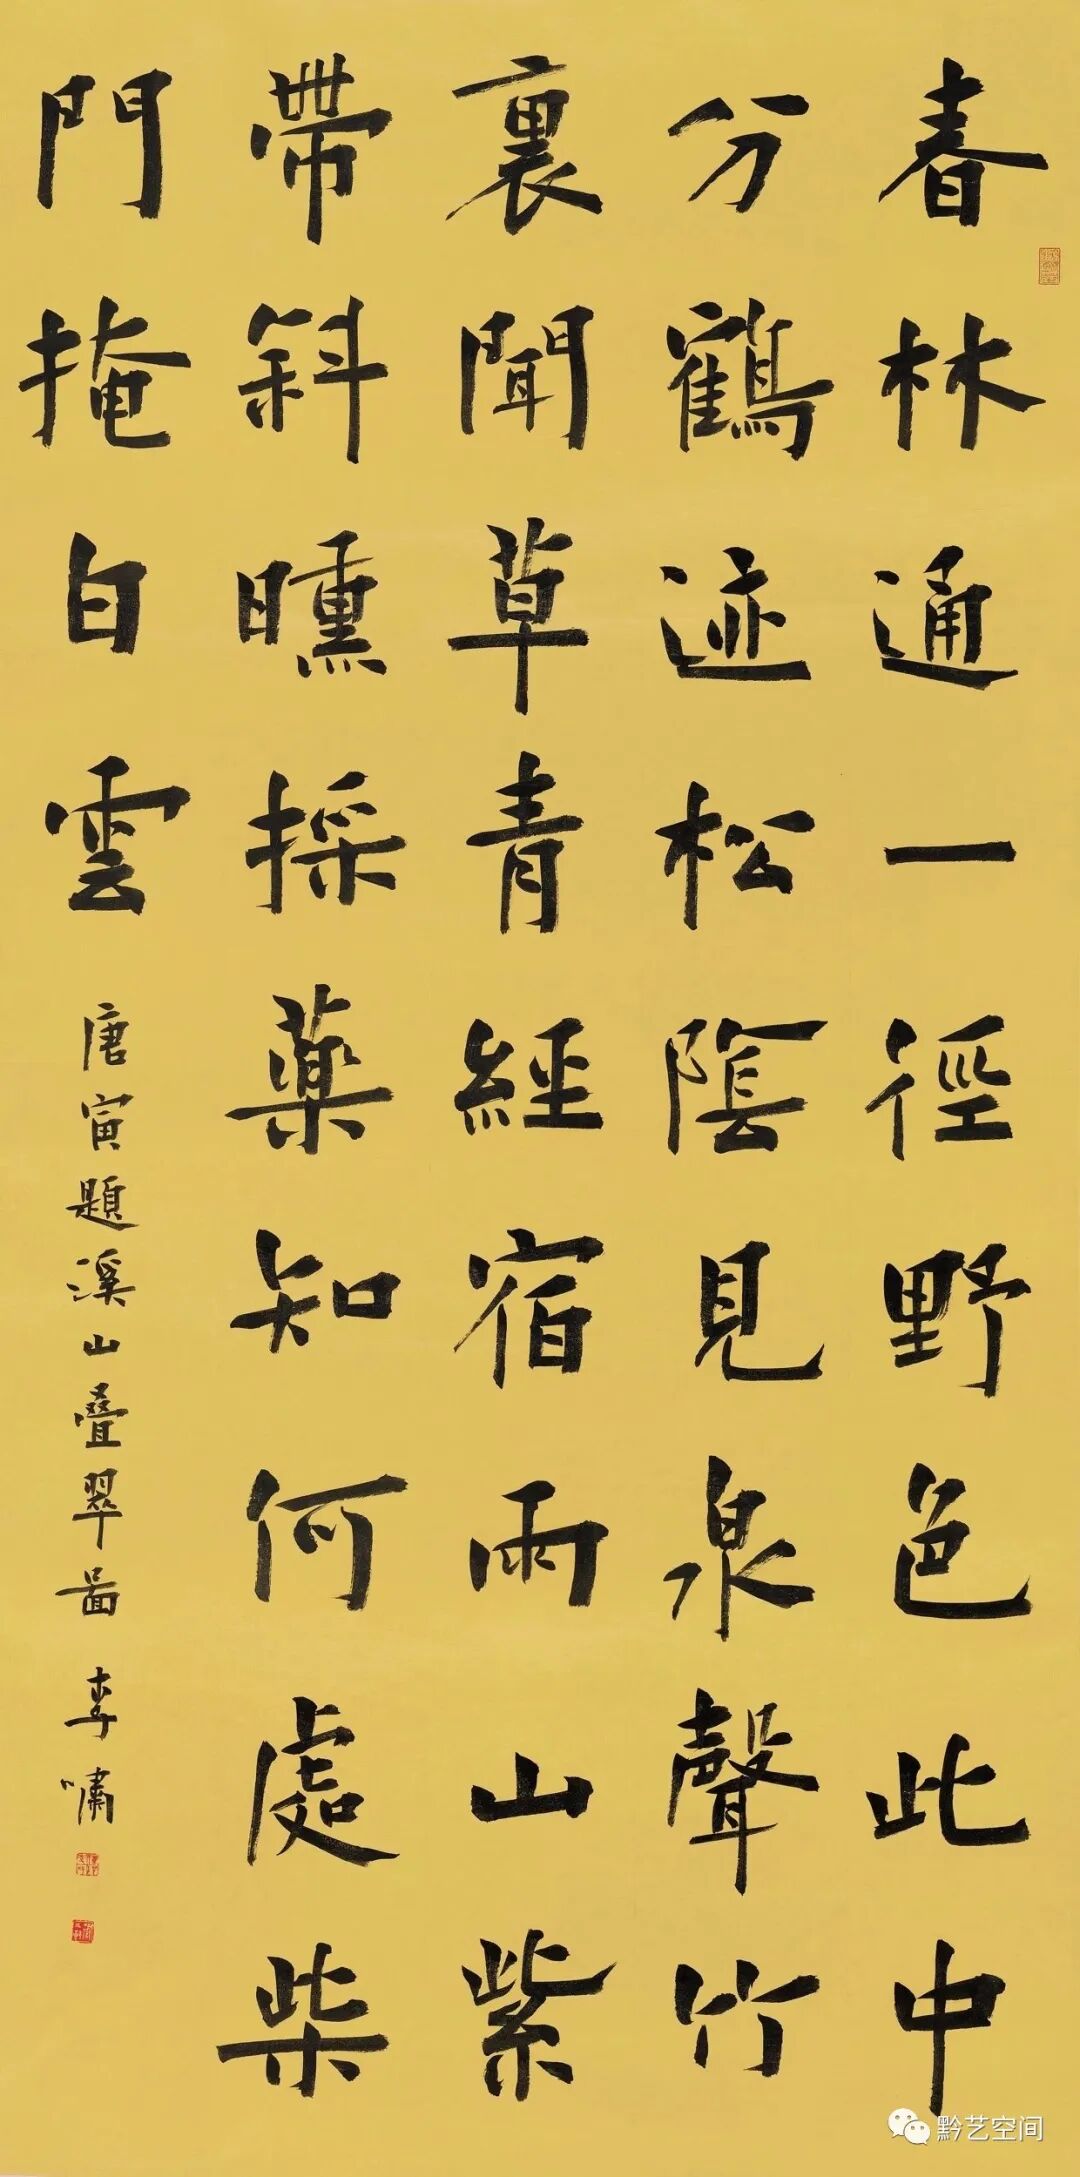 春林通一徑野色此中
分鶴迹松陰見泉聲竹
裏聞草青經宿雨山紫
帶斜曛採藥知何處柴
門掩白雲
唐寅題溪山疊翠啚
李嘯
黔艺空间